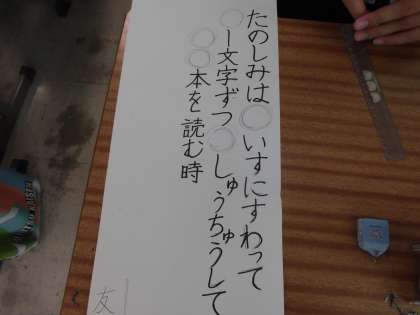 たのしみは○いすにすわって
○一文字ずつ○しゅうちゅうして
○○本を読む時
友